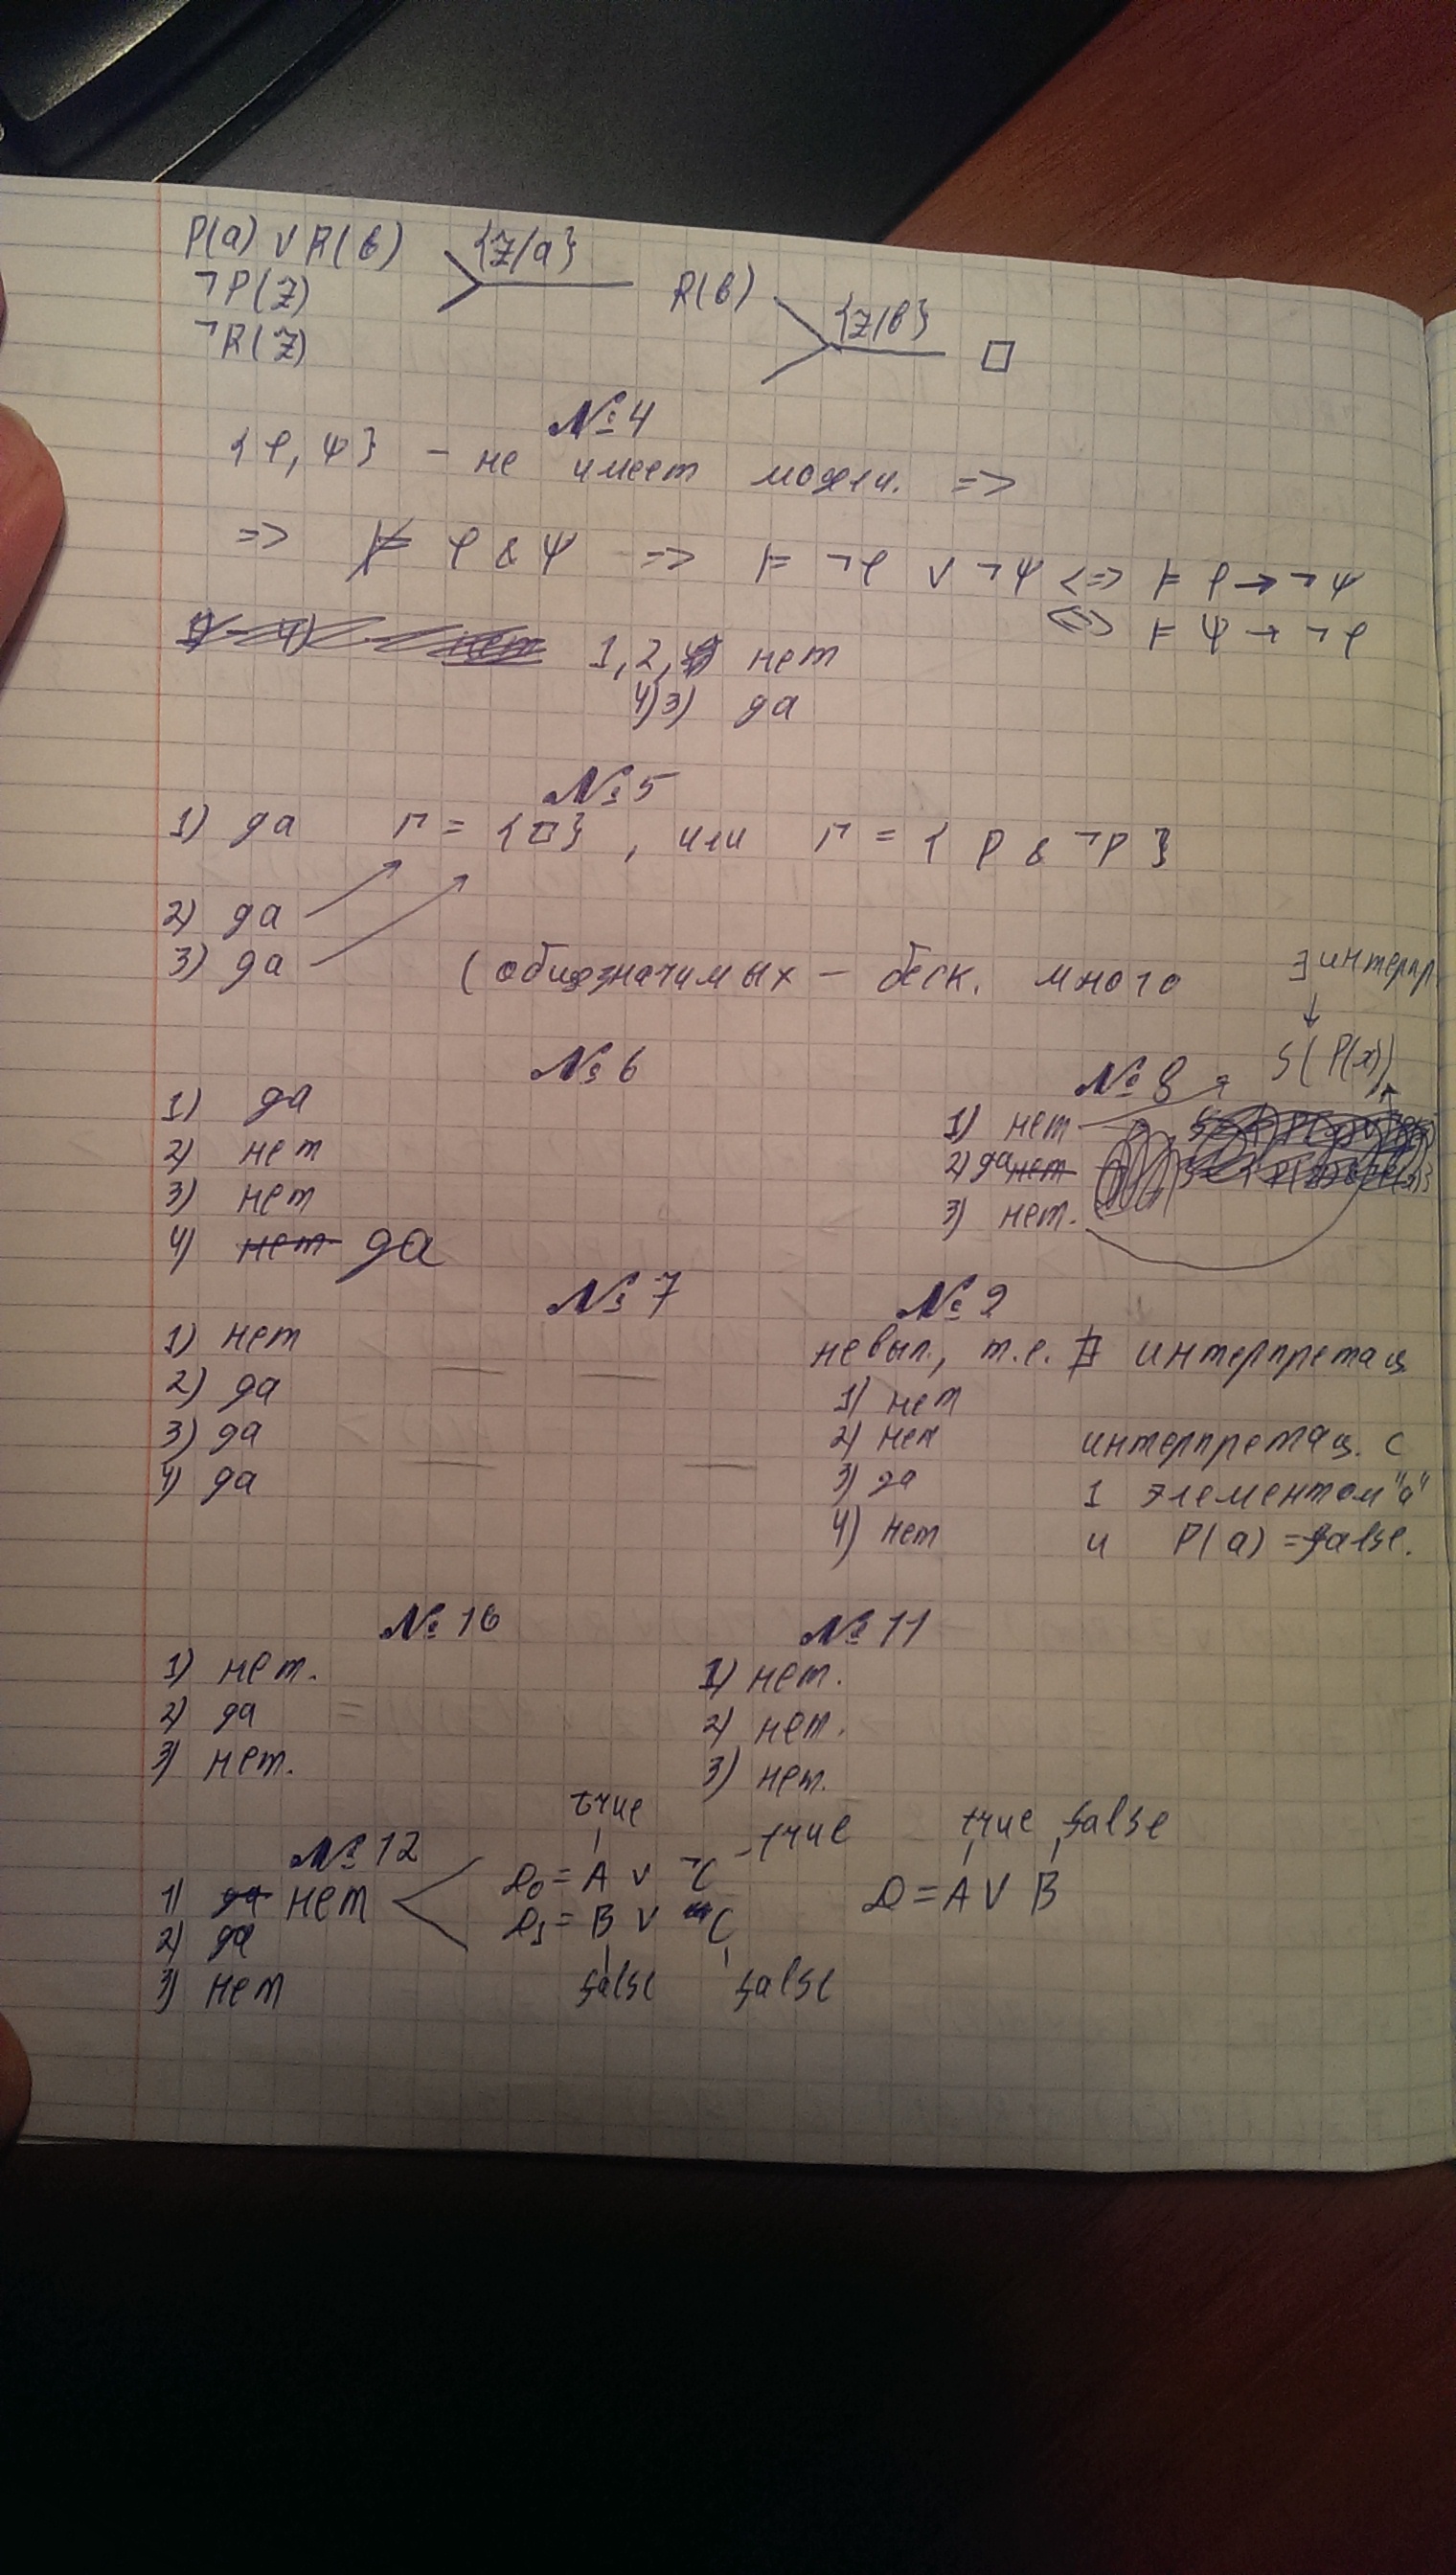 P(a) ∨ R(b) {z/a}
¬P(z) R(b) {z/b} □
¬R(z)
№4
{φ, ψ} - не имеет модели. =>
=> ⊭ φ & ψ => ⊨ ¬φ ∨ ¬ψ <=> ⊨ φ → ¬ψ
<=> ⊨ ψ → ¬φ
1, 2, нет
4)3) да
№5
1) да Γ = {□}, или Γ = { P & ¬P }
2) да
3) да (общезначимых - беск. много
№6
1) да
2) нет
3) нет
4) нет да
∃ интерпр.
↓
№8 S( P(x))
1) нет
2) да нет
3) нет.
№7
1) нет
2) да
3) да
4) да
№9
невып., т.е. ∄ интерпретац
1) нет
2) нет интерпретац. с
3) да 1 элементом "a"
4) нет и P(a) = false.
№10
1) нет.
2) да
3) нет.
№11
1) нет.
2) нет.
3) нет.
№12
1) да нет
2) да
3) нет
true true
D₀ = A ∨ ¬C
D₁ = B ∨ C
false false
true false
D = A ∨ B